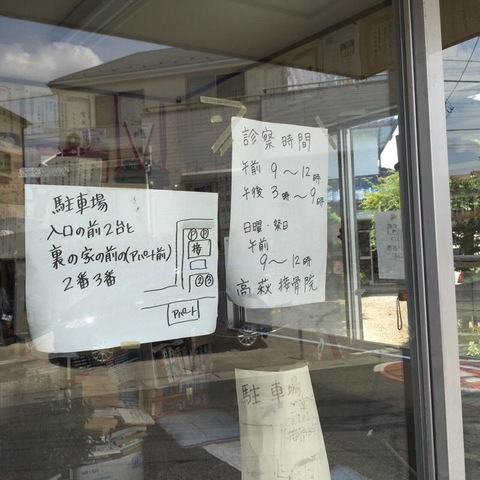 診察時間
午前 9〜12時
午後 3時〜9時
日曜・祭日
午前
9〜12時
高萩接骨院
駐車場
入口の前2台と
裏の家の前の(アパート前)
2番3番
① ②
接
② ③
アパート
駐車場